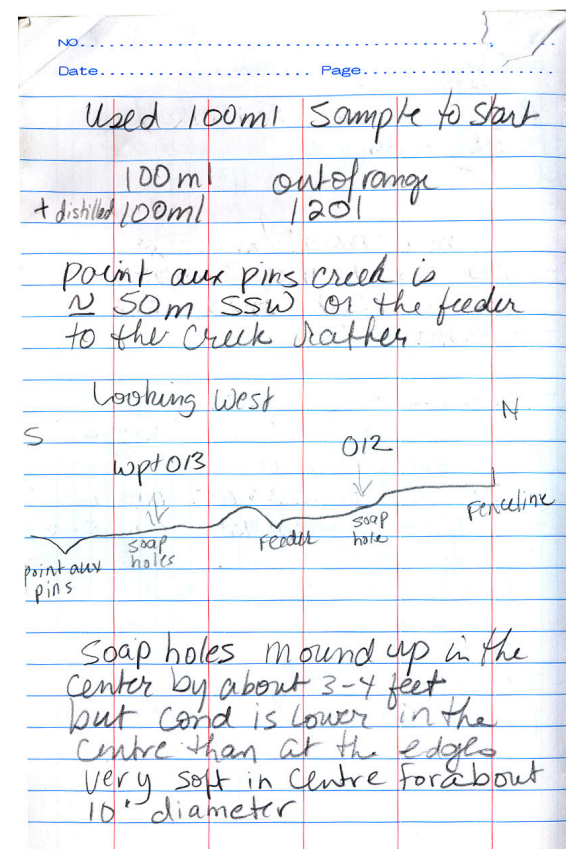 NO.
Date. Page.
Used 100ml sample to start
100ml out of range
+ distilled 100ml 1201
point aux pins creek is
≈ 50m SSW or the feeder
to the creek rather
Looking West
N
S
012
wpt 013
Fenceline
soap hole
Feeder
soap holes
point aux pins
soap holes mound up in the
center by about 3-4 feet
but cond is lower in the
centre than at the edges
very soft in centre for about
10' diameter